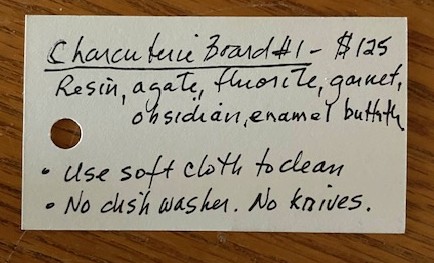 Charcuterie Board #1 - $125
Resin, agate, fluorite, garnet,
obsidian, enamel buttfly
• Use soft cloth to clean
• No dish washer. No knives.